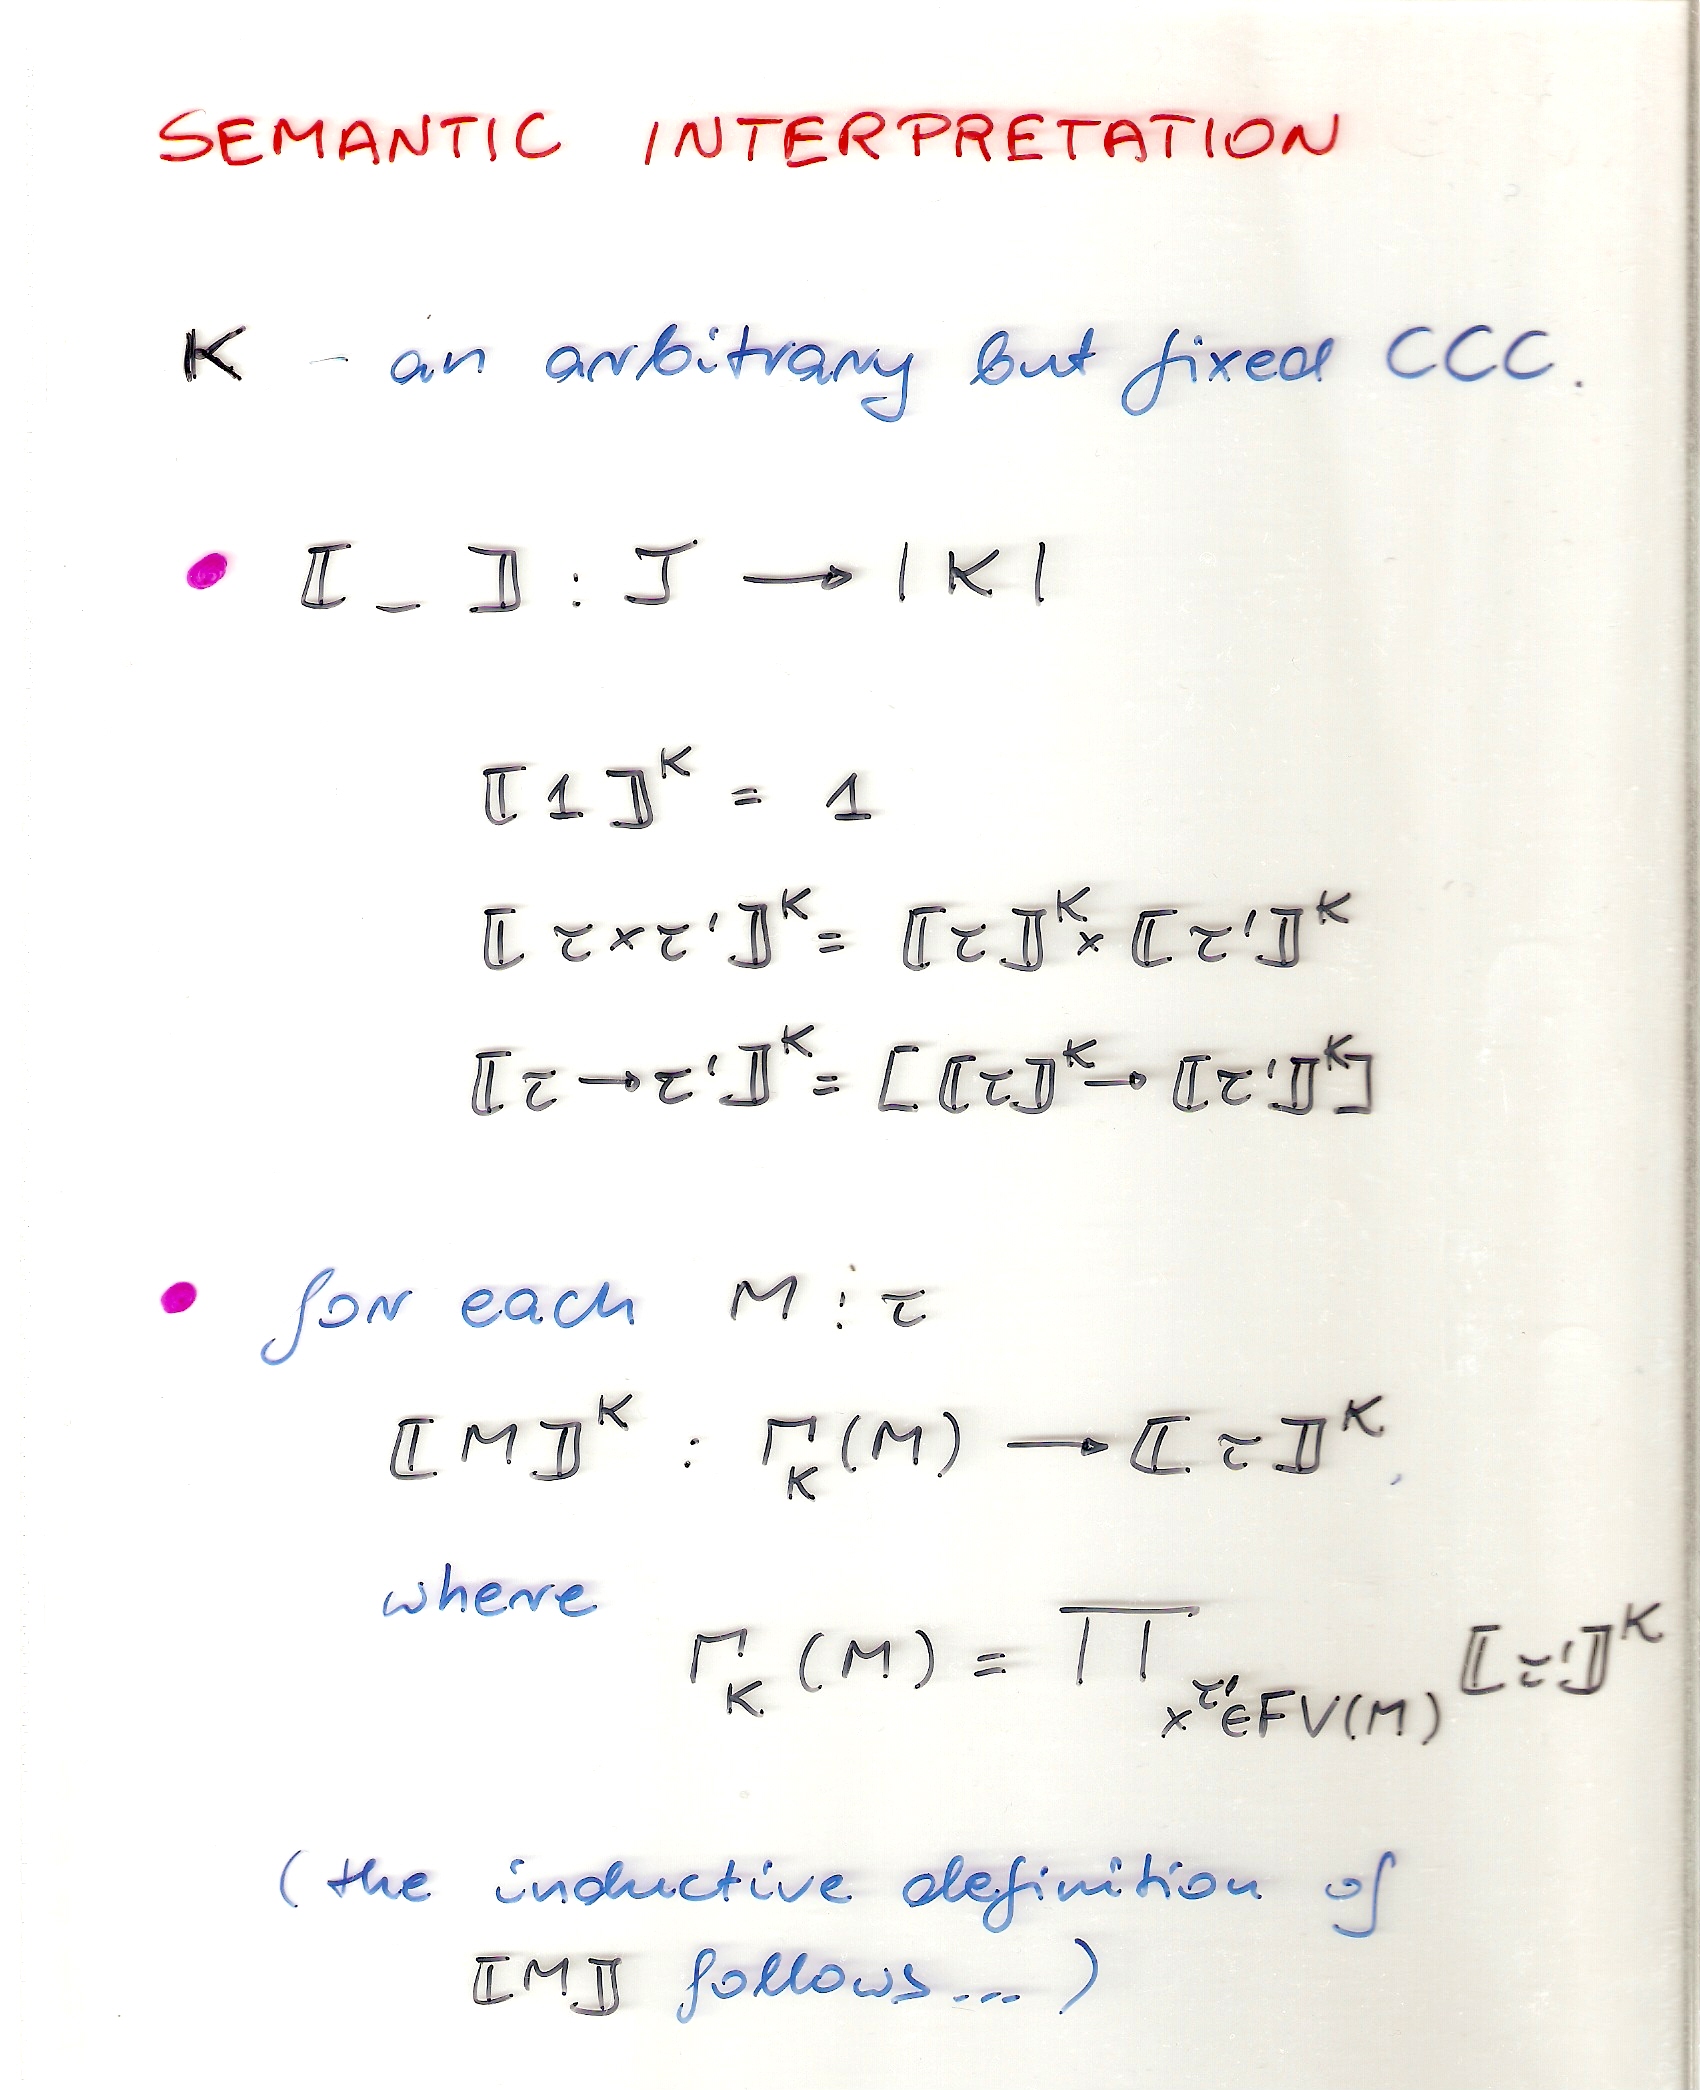 SEMANTIC INTERPRETATION
K - an arbitrary but fixed CCC.
• ⟦_⟧ : 𝒯 → |K|
⟦1⟧^K = 1
⟦τ×τ'⟧^K = ⟦τ⟧^K × ⟦τ'⟧^K
⟦τ→τ'⟧^K = [⟦τ⟧^K → ⟦τ'⟧^K]
• for each M : τ
⟦M⟧^K : Γ_K(M) → ⟦τ⟧^K,
where
Γ_K(M) = ∏_{x^{τ'}∈FV(M)} ⟦τ'⟧^K
(the inductive definition of
⟦M⟧ follows...)